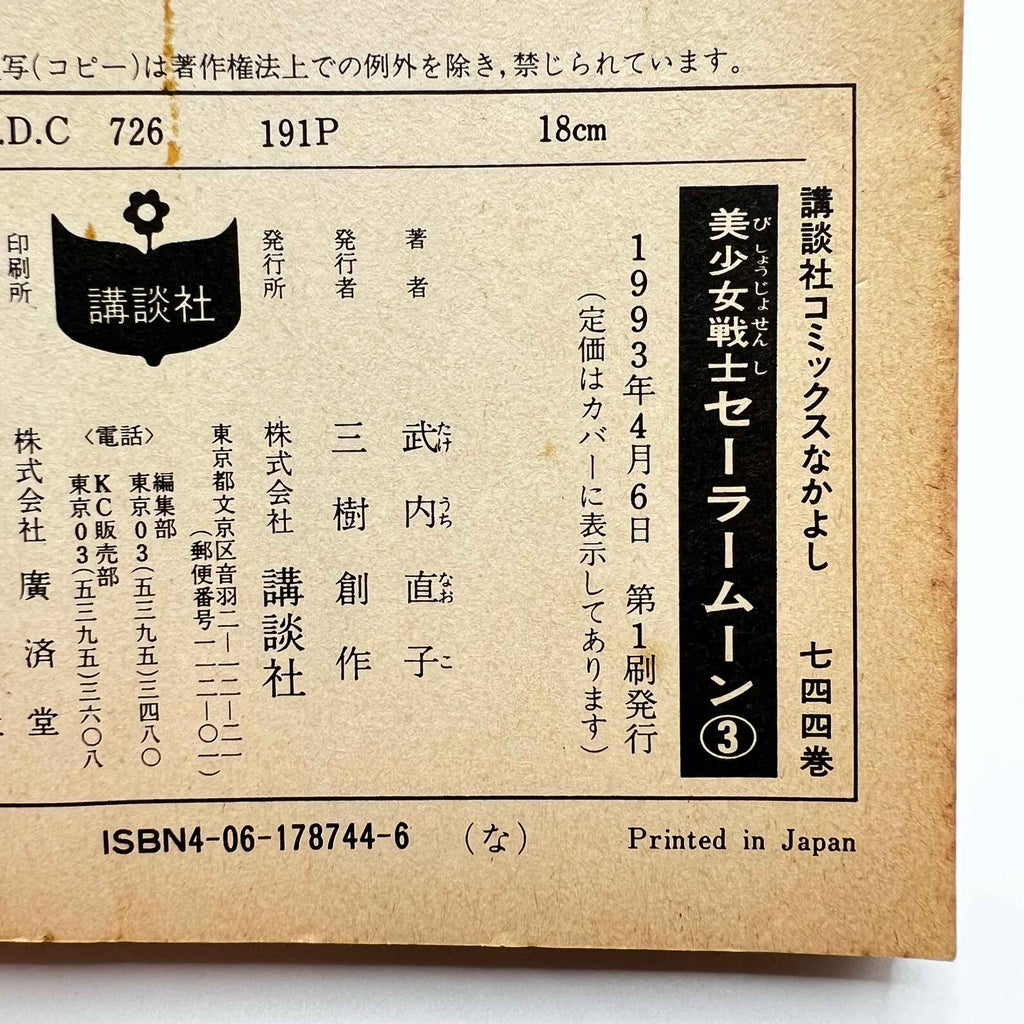 写(コピー)は著作権法上での例外を除き,禁じられています。
.D.C 726 191P 18cm
講談社コミックスなかよし 七四四巻
美少女戦士セーラームーン③
びしょうじょせんし
1993年4月6日 第1刷発行
(定価はカバーに表示してあります)
著者 武内直子
たけうちなおこ
発行者 三樹創作
発行所 株式会社 講談社
東京都文京区音羽二—一二—二一
(郵便番号一一二—〇一)
〈電話〉
編集部
東京03(五三九五)三四八〇
KC販売部
東京03(五三九五)三六〇八
講談社
印刷所 株式会社 廣済堂
ISBN4-06-178744-6 (な) Printed in Japan